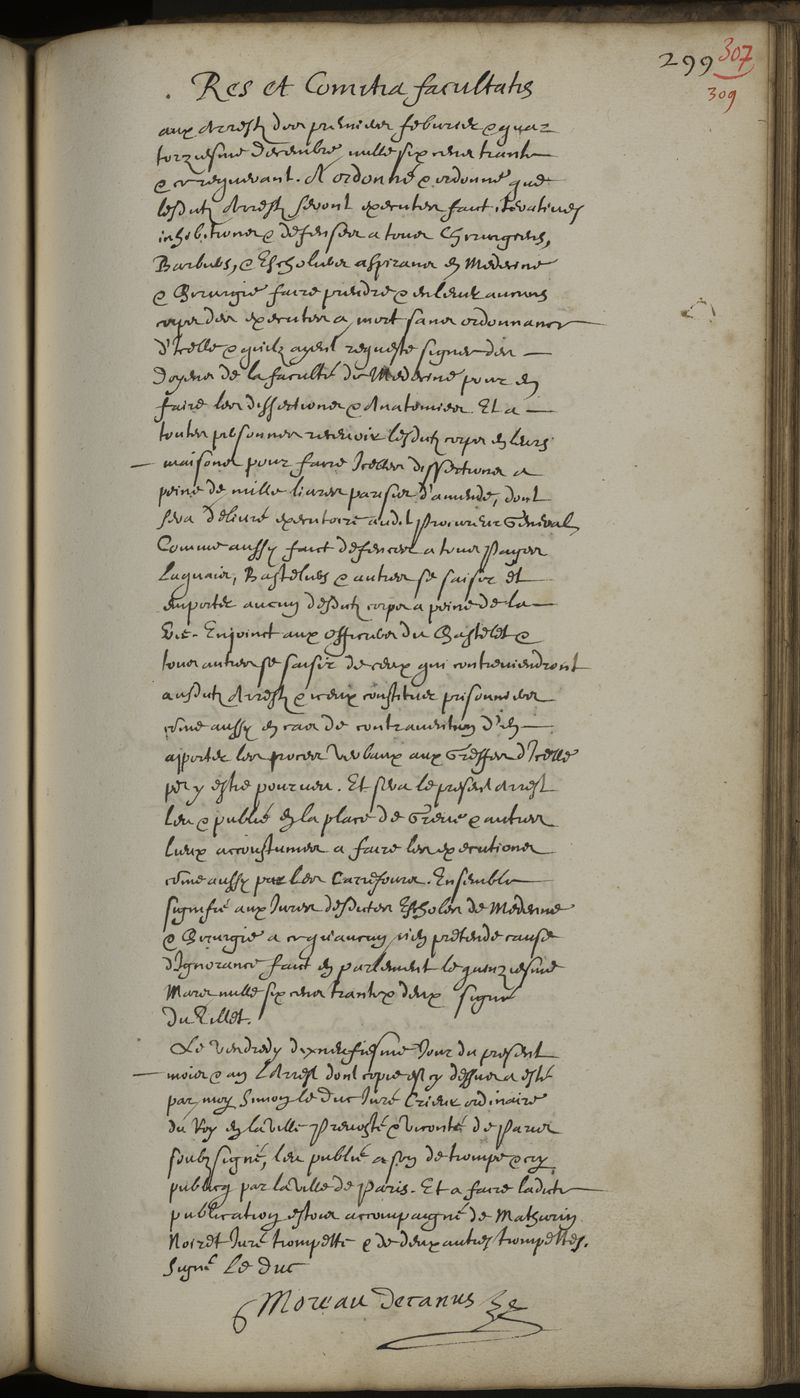 299 307
309
Res et Comitia facultatis
aux Arrestz des premier feburier & qua-
torziesme decembre mille six cens trante
& ce requerant. A ordonné & ordonne que
lesditz Arrestz seront executer faict iteratiues
inhibitiones & defenses a tous Chirurgiens,
Barbiers, & Escholiers aspirans en Medecine
& Chirurgie faire prendre & enleuer aucuns
corps des executes a mort sans ordonnance
d'Icelle & quilz ayent requeste signee des
Doyens de la faculté de Medecine pour en
faire les dissectiones & Anatomies. Et a
toutes personnes receuoir lesditz corps en leurs
maisons pour faire Icelles dissectiones a
peine de mille liures parisis d'amende, dont
sera deliuré executoire audit Procureur General
Comme aussy faict defences a tous Pages
Laquais, Bastelies & autres se saisir et
emporter aucun desditz corps a peine de la
vie. Enjoinct aux officiers du Chastelet &
tous autres se saisir de ceux qui contreuiendront
ausditz Arrestz & iceux constituer prisonniers
cõme aussy en cas de contrauention d'en
apporter les proces verbaux aux Greffes d'Icelle
pory estre pourueu. Et sera le present Arrest
leu & publié en la place de Greue & autres
lieux accoustumes a faire les executiones
cõme aussy par les Carrefours. Ensemble
signifié aux Jures desdites Escholes de Medecine
& Chirurgie a ce qu'aucun n'en pretende cause
d'Ignorance faict en parlement le quinziesme
Mars mille six cens trante & deux signé
Du Tillet.
Le vendredy dixneufiesme Jour du present
mois & an L'Arrest dont copie est cy dessus a esté
par moy Simon le duc Juré Crieur ordinaire
du Roy en la ville Preuosté & Viconté de Paris
soubz signé, leu publié a son de trompe & cry
publicq par la ville de Paris. Et a faire ladite
publication estois accompaigné de Mathurin
Noiret Juré trompette & de deux autres trompettes.
Signé Le Duc
Moreau Decanus